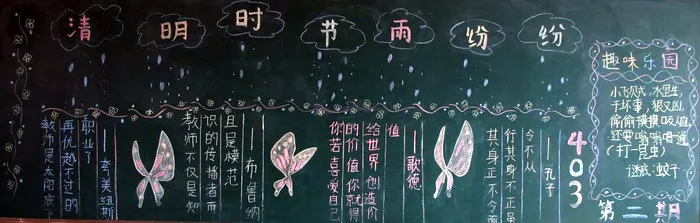 清明时节雨纷纷
教师是太阳底下
再优越不过的
职业了
——夸美纽斯
教师不仅是知
识的传播者而
且是模范
——布鲁纳
你若喜爱自己
的价值你就得
给世界创造价
值
——歌德
其身正不令而
行其身不正虽
令不从
——孔子
403
趣味乐园
小飞贼,水里生,
干坏事,狠又凶,
偷偷摸摸吸人血,
还要嗡嗡唱一通
(打一昆虫)
谜底:蚊子
第二期